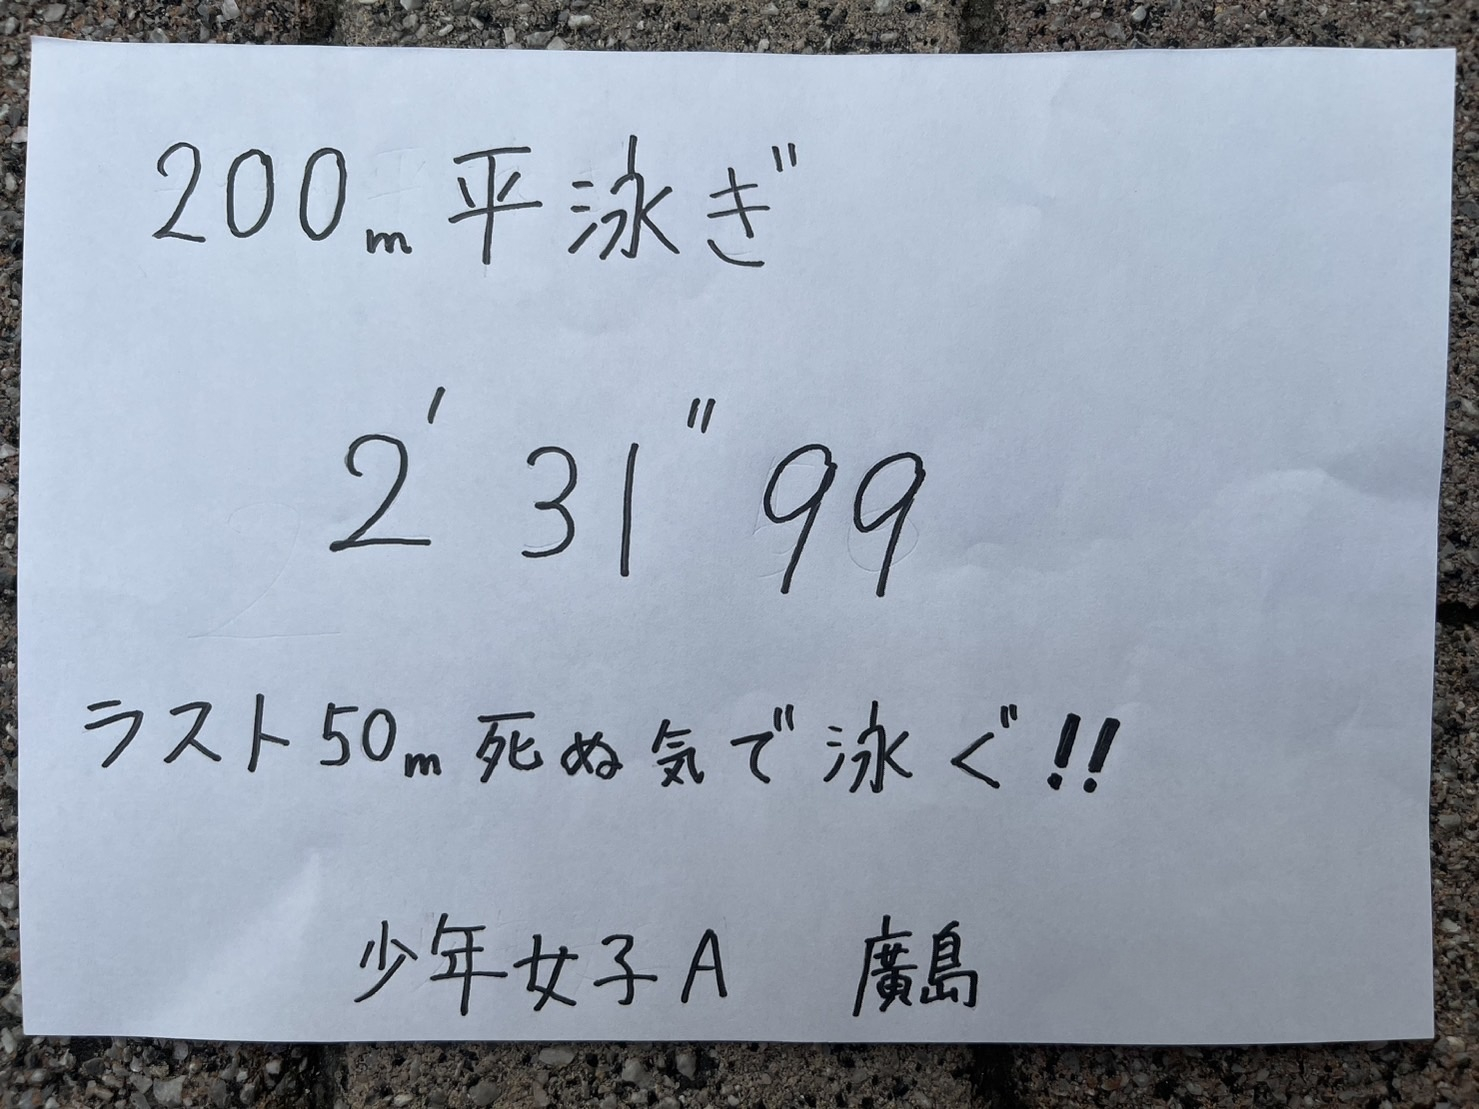 200m平泳ぎ
2'31"99
ラスト50m死ぬ気で泳ぐ!!
少年女子A 廣島